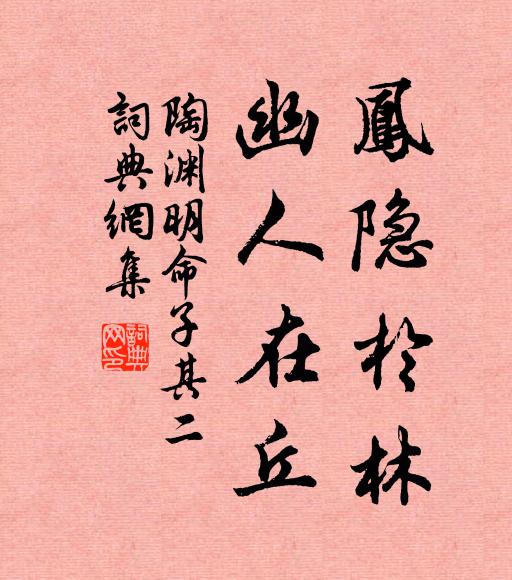 鳳隐於林
幽人在丘
陶渊明命子其二
詞典網集
詞典网印